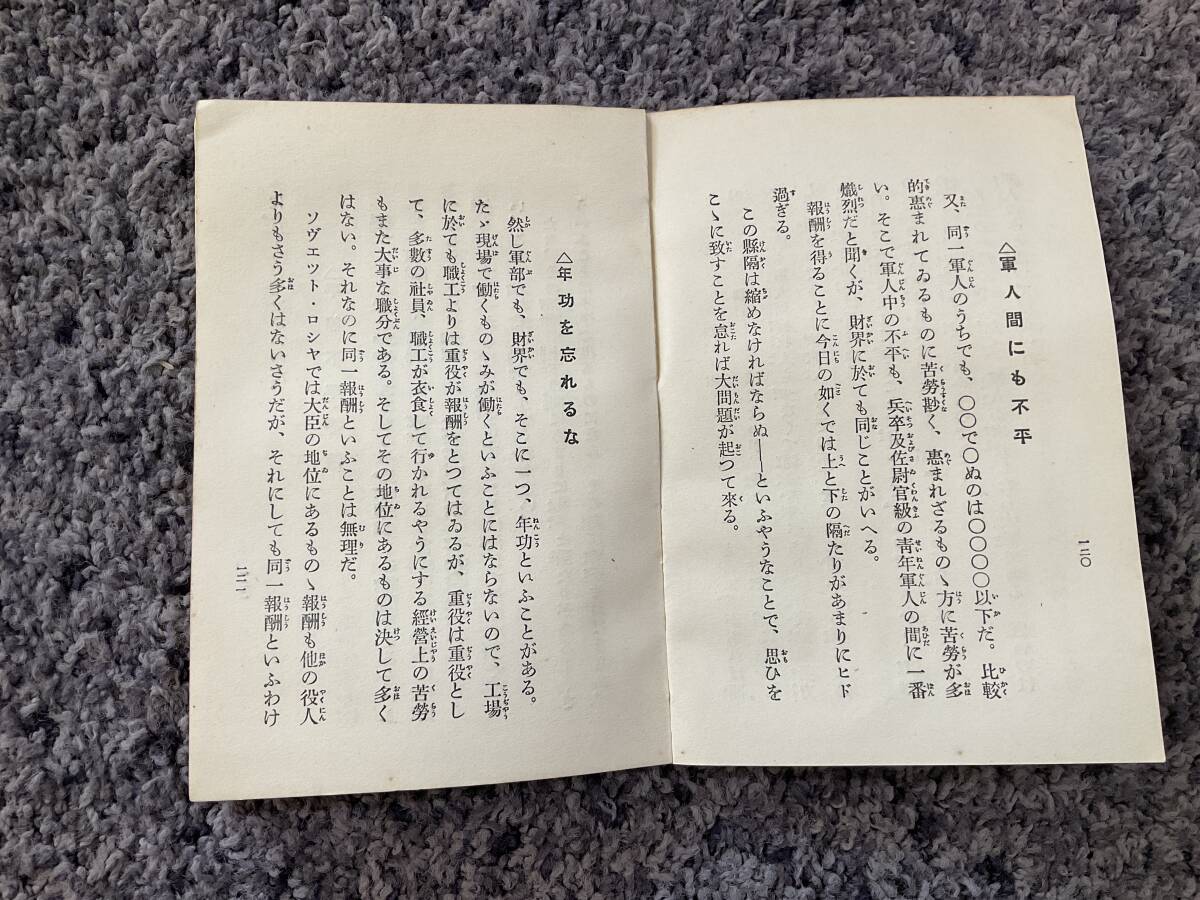 一二〇
△軍人間にも不平
又、同一軍人のうちでも、〇〇で〇ぬのは〇〇〇〇以下だ。比較
的惠まれてゐるものに苦勞尠く、惠まれざるものゝ方に苦勞が多
い。そこで軍人中の不平も、兵卒及佐尉官級の靑年軍人の間に一番
熾烈だと聞くが、財界に於ても同じことがいへる。
報酬を得ることに今日の如くでは上と下の隔たりがあまりにヒド
過ぎる。
この縣隔は縮めなければならぬ――といふやうなことで、思ひを
こゝに致すことを怠れば大問題が起つて來る。
△年功を忘れるな
然し軍部でも、財界でも、そこに一つ、年功といふことがある。
たゞ現場で働くものゝみが働くといふことにはならないので、工場
に於ても職工よりは重役が報酬をとつてはゐるが、重役は重役とし
て、多數の社員、職工が衣食して行かれるやうにする經營上の苦勞
もまた大事な職分である。そしてその地位にあるものは決して多く
はない。それなのに同一報酬といふことは無理だ。
ソヴエツト・ロシヤでは大臣の地位にあるものゝ報酬も他の役人
よりもさう多くはないさうだが、それにしても同一報酬といふわけ
一二一